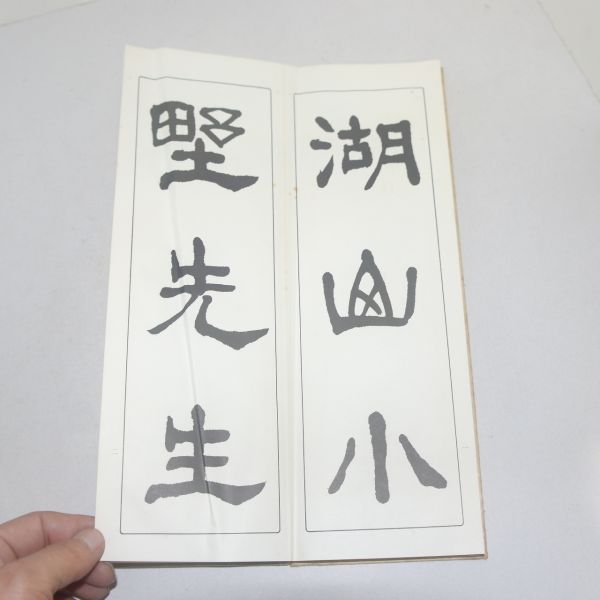 湖山小
野先生